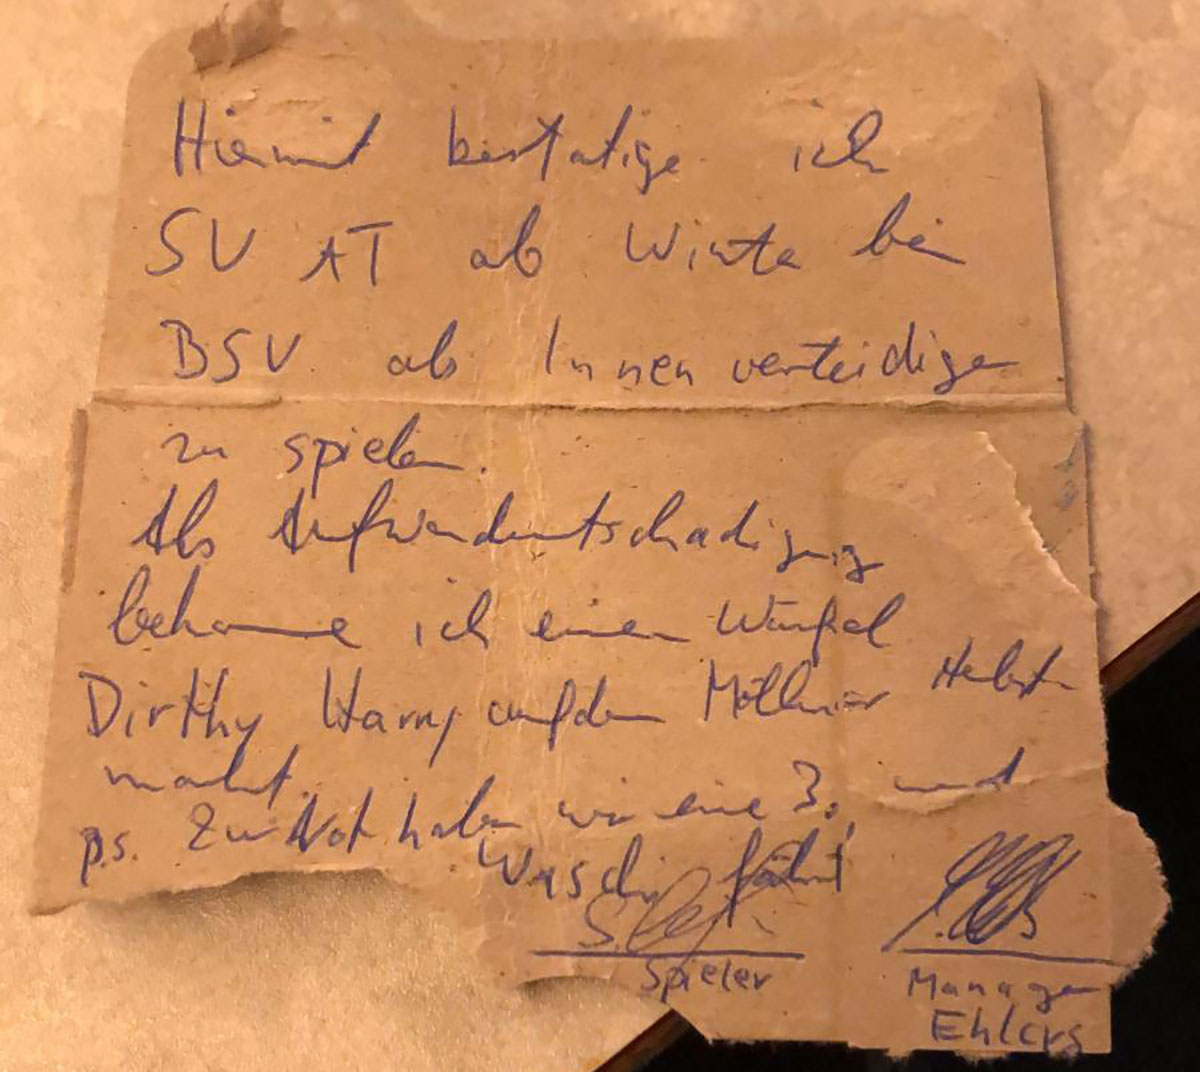 Hiermit bestätige ich
SV AT ab Winter bei
BSV als Innenverteidiger
zu spielen.
Als Aufwandentschädigung
bekomme ich einen Würfel
Dirthy Harry auf dem Möllner Herbst
markt.
p.s. Zur Not haben wir eine 3. und
Waschi fährt
Spieler
Manager
Ehlers